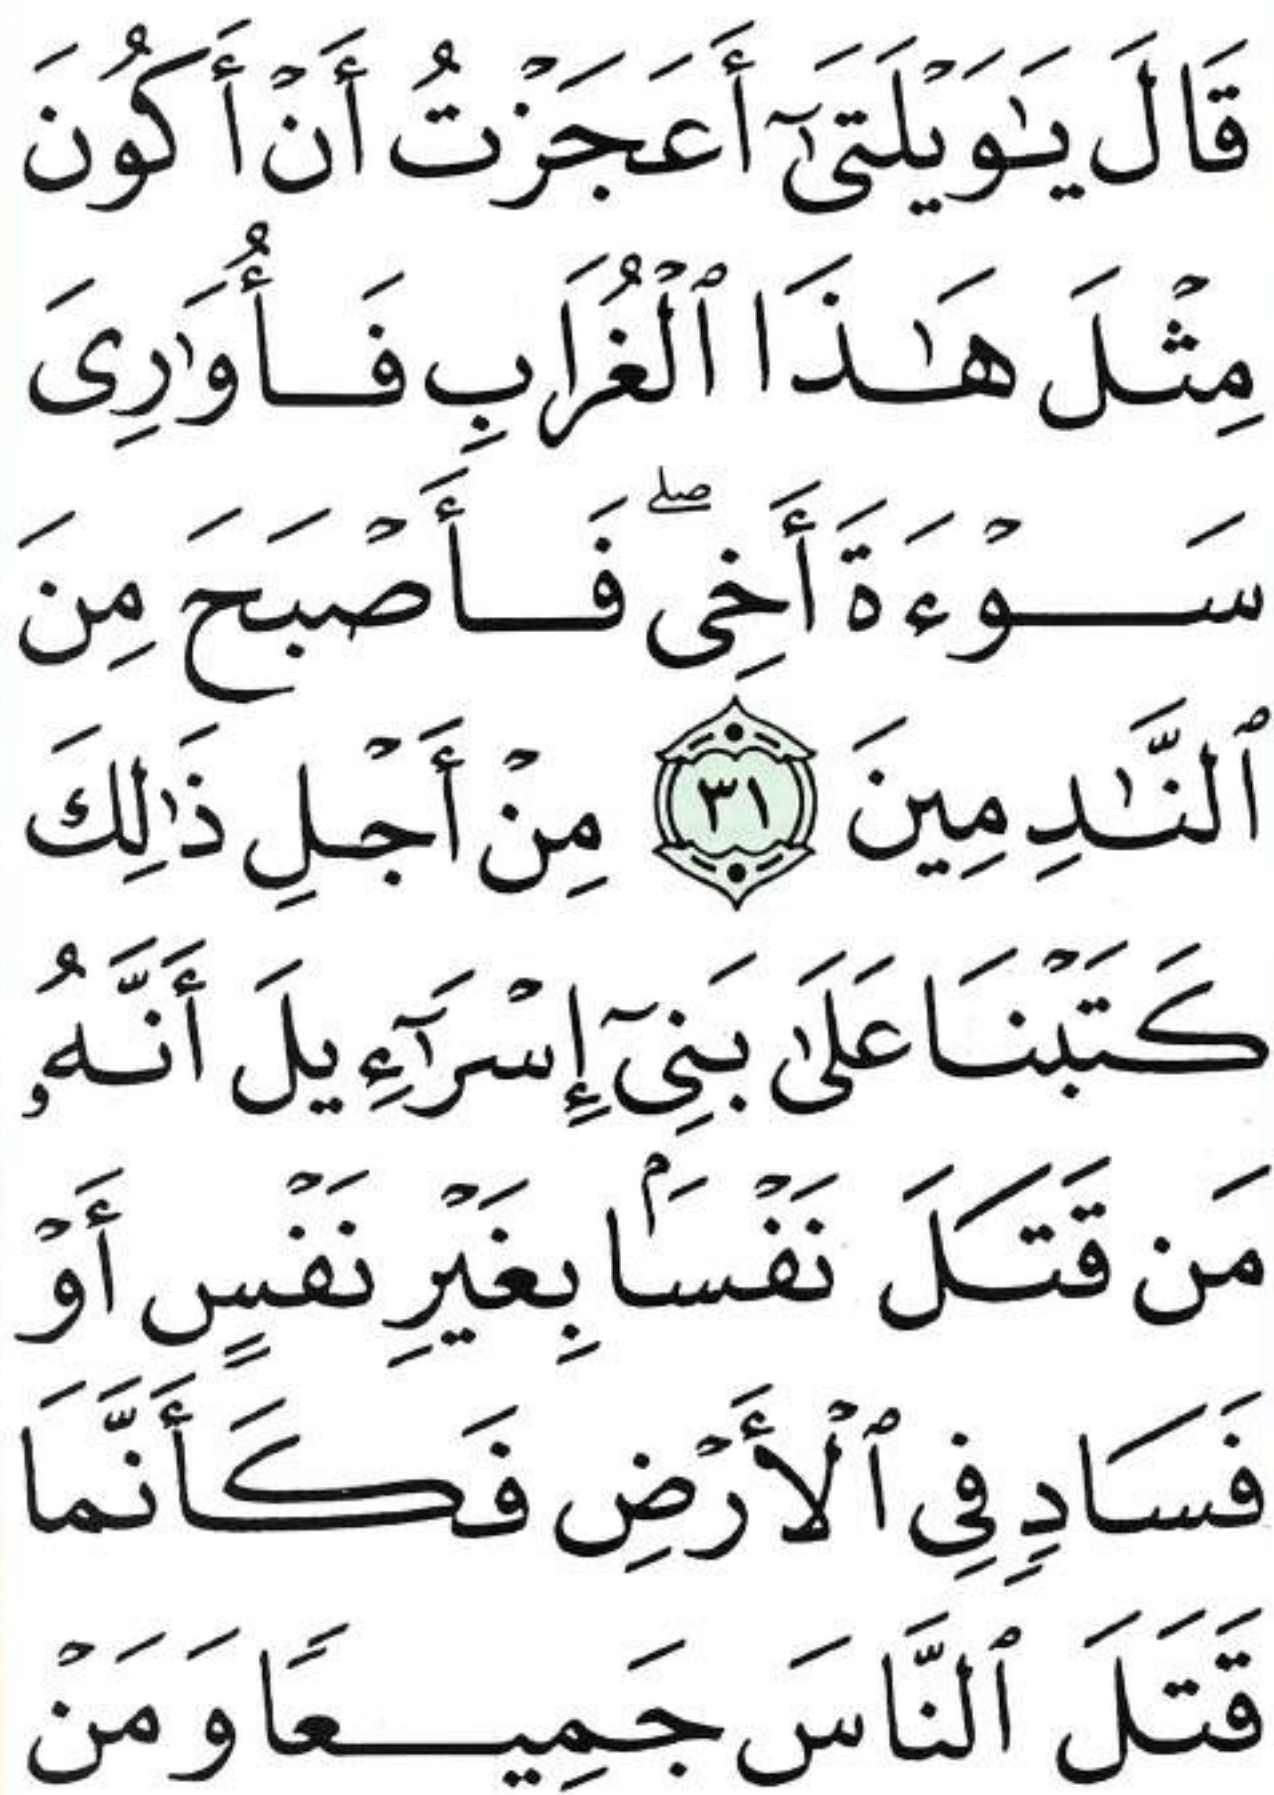 قَالَ يَـٰوَيۡلَتَىٰٓ أَعَجَزۡتُ أَنۡ أَكُونَ
مِثۡلَ هَـٰذَا ٱلۡغُرَابِ فَأُوَٰرِىَ
سَوۡءَةَ أَخِىۖ فَأَصۡبَحَ مِنَ
ٱلنَّـٰدِمِينَ ٣١ مِنۡ أَجۡلِ ذَٰلِكَ
كَتَبۡنَا عَلَىٰ بَنِىٓ إِسۡرَٰٓءِيلَ أَنَّهُۥ
مَن قَتَلَ نَفۡسَۢا بِغَيۡرِ نَفۡسٍ أَوۡ
فَسَادٍ فِى ٱلۡأَرۡضِ فَكَأَنَّمَا
قَتَلَ ٱلنَّاسَ جَمِيعًا وَمَنۡ